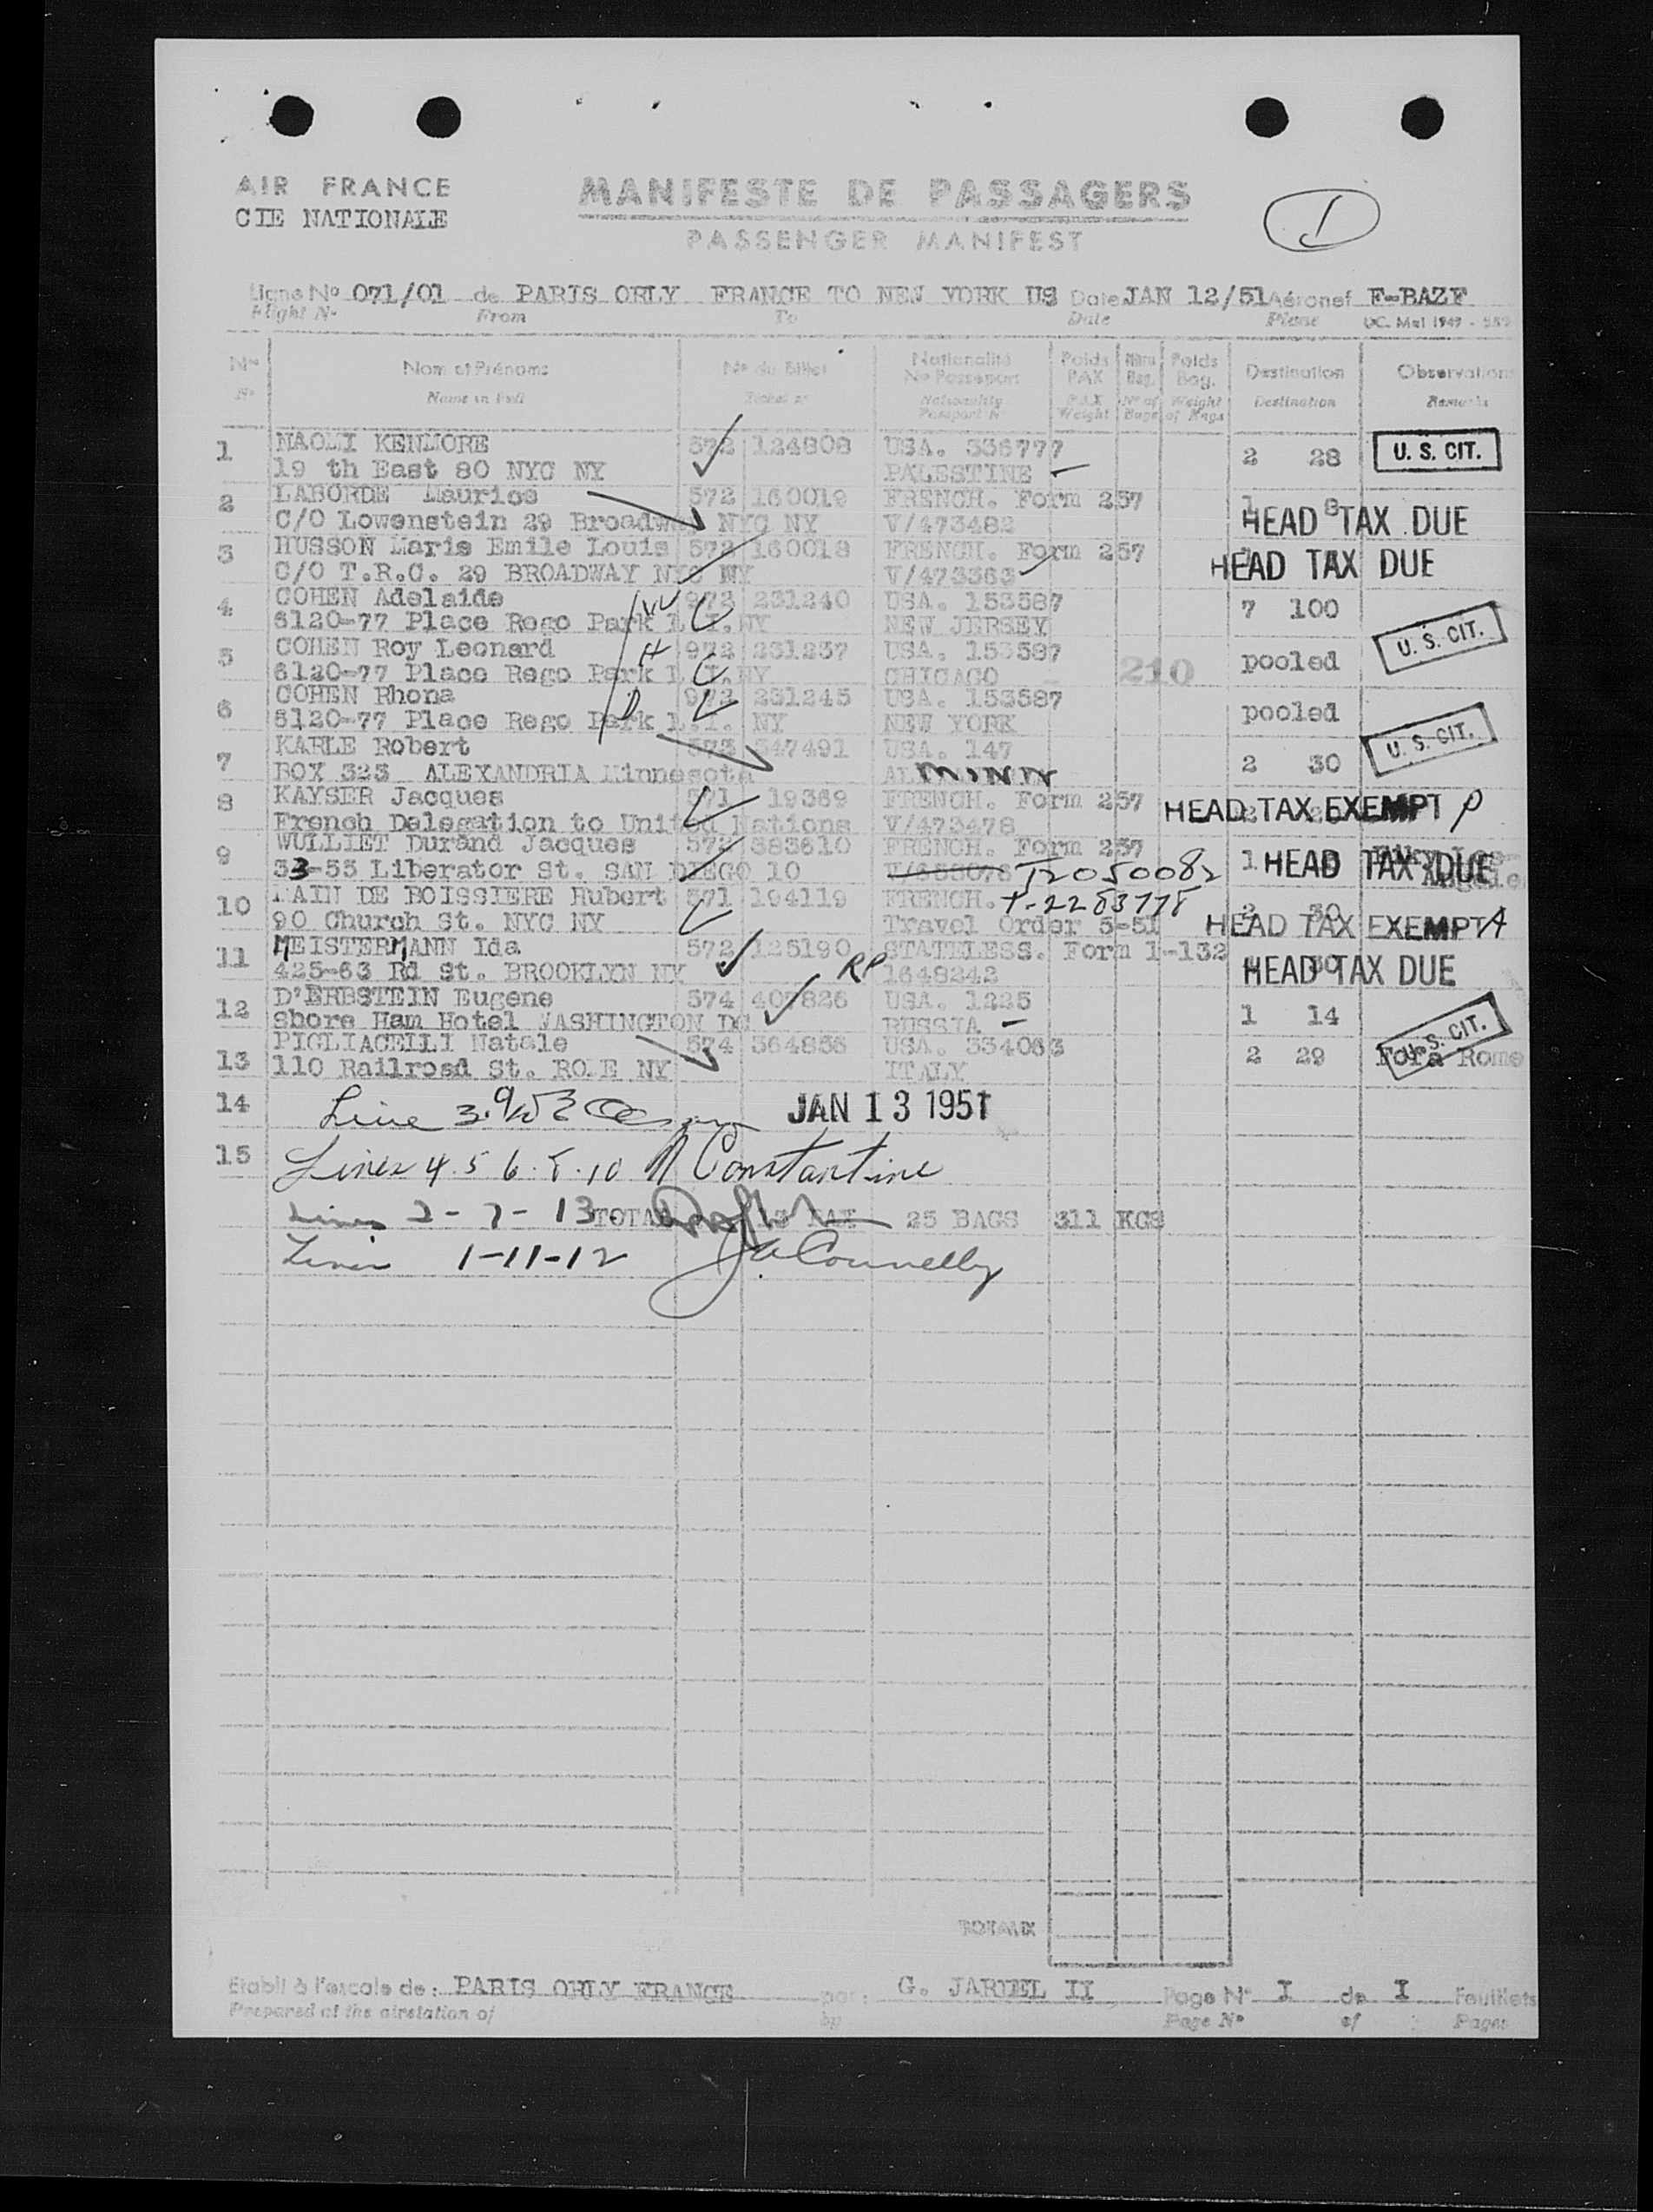 AIR FRANCE
CIE NATIONALE
MANIFESTE DE PASSAGERS
PASSENGER MANIFEST
I
Ligne No 071/01 de PARIS ORLY FRANCE TO NEW YORK US Date JAN 12/51 Aéronef F-BAZF
Flight No From To Date Plane UC. Mai 1949
Nos Nom et Prénoms No du Billet Nationalité No Passeport Poids PAX Poids Bag. Destination Observations
No Name in Full Ticket no Nationality Passport No PAX Weight No of Bags Weight of Bags Destination Remarks
1 NAOMI KENMORE 572 124808 USA. 336777 2 28 U. S. CIT.
19 th East 80 NYC NY PALESTINE
2 LABORDE Maurice 572 160019 FRENCH. Form 257 1 8 HEAD TAX DUE
C/O Lowenstein 29 Broadway NYC NY V/473482
3 HUSSON Marie Emile Louis 572 160018 FRENCH. Form 257 HEAD TAX DUE
C/O T.R.C. 29 BROADWAY NYC NY V/473363
4 COHEN Adelaide 972 231240 USA. 153587 7 100
6120-77 Place Rego Park L.I. NY NEW JERSEY
5 COHEN Roy Leonard 972 231237 USA. 153587 210 pooled U. S. CIT.
6120-77 Place Rego Park L.I. NY CHICAGO
6 COHEN Rhona 972 231245 USA. 153587 pooled
6120-77 Place Rego Park L.I. NY NEW YORK
7 KARLE Robert 573 347491 USA. 147 2 30 U. S. CIT.
BOX 323 ALEXANDRIA Minnesota MINN
8 KAYSER Jacques 571 19369 FRENCH. Form 257 HEAD TAX EXEMPT P
French Delegation to United Nations V/473478
9 WULLIET Durand Jacques 572 383610 FRENCH. Form 257 1 HEAD TAX DUE
33-55 Liberator St. SAN DIEGO 10 T2050082
10 DE BOISSIERE Hubert 571 194119 FRENCH. T-2283778 2 30
90 Church St. NYC NY Travel Order 5-51 HEAD TAX EXEMPT A
11 MEISTERMANN Ida 572 125190 STATELESS. Form I-132
425-63 Rd St. BROOKLYN NY RP 1648242 HEAD TAX DUE
12 D'ERBSTEIN Eugene 574 407826 USA. 1225 1 14 U. S. CIT.
Shore Ham Hotel WASHINGTON DC RUSSIA
13 PIGLIACELLI Natale 574 364856 USA. 334063 2 29 Rome
110 Railroad St. ROME NY ITALY
14 Line 3.9 JAN 13 1951
15 Lines 4. 5 6. 8. 10 N Constantine
Lines 2-7-13 TOTAL 13 PAX 25 BAGS 311 KGS
Lines 1-11-12 J A Connelly
TOTAUX
Etabli à l'escale de : PARIS ORLY FRANCE par : G. JARIEL II Page No I de I Feuillets
Prepared at the airstation of by Page No of Pages